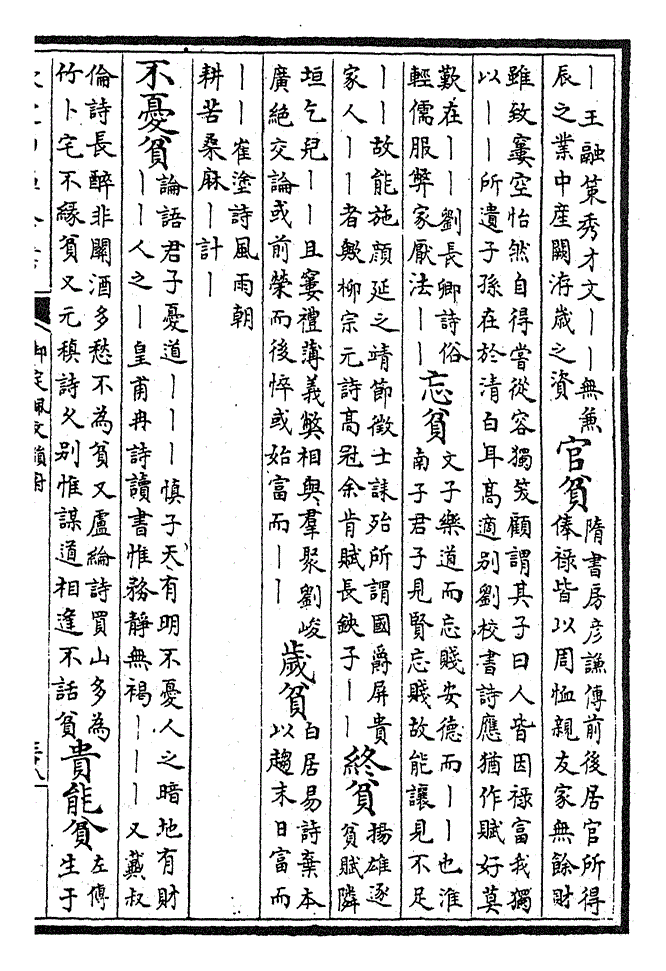 ｜王融策秀才文｜｜無兼
辰之業中産闕洊歲之資
官貧
隋書房彦謙傳前後居官所得
俸禄皆以周恤親友家無餘財
雖致窶空怡然自得嘗從容獨笑顧謂其子曰人皆因禄富我獨
以｜｜所遺子孫在於清白耳髙適别劉校書詩應猶作賦好莫
歎在｜｜劉長卿詩俗
輕儒服弊家厭法｜｜
忘貧
文子樂道而忘賤安德而｜｜也淮
南子君子見賢忘賤故能讓見不足
｜｜故能施顔延之靖節徴士誄殆所謂國爵屏貴
家人｜｜者歟柳宗元詩髙冠余肯賦長鋏子｜｜
終貧
揚雄逐
貧賦隣
垣乞兒｜｜且窶禮薄義獘相與羣聚劉峻
廣絶交論或前榮而後悴或始富而｜｜
歲貧
白居易詩棄本
以趨末日富而
｜｜崔塗詩風雨朝
耕苦桑麻｜計｜
不憂貧
論語君子憂道｜｜｜慎子天有明不憂人之暗地有財
｜｜人之｜皇甫冉詩讀書惟務靜無褐｜｜｜又戴叔
倫詩長醉非關酒多愁不為貧又盧綸詩買山多為
竹卜宅不緣貧又元稹詩久别惟謀道相逢不話貧
貴能貧
左傳
生于
御定佩文韻府